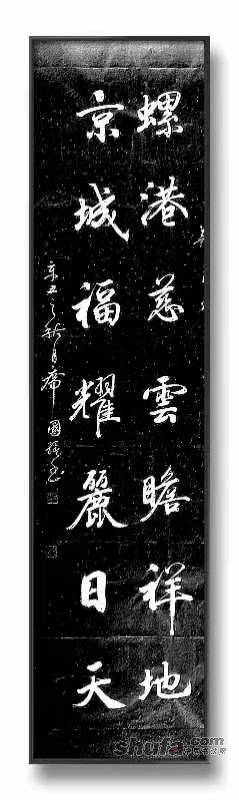 螺港慈雲瞻祥地
京城福耀麗日天
辛丑之秋月席國強書
shufa.com